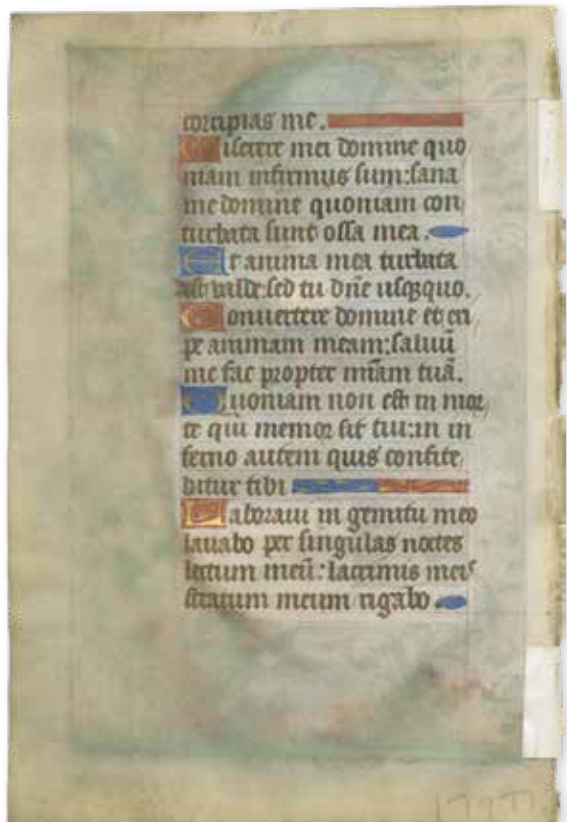 corripias me.
Miserere mei domine quo
niam infirmus sum: sana
me domine quoniam con
turbata sunt ossa mea.
Et anima mea turbata
est valde: sed tu dñe usqȝquo.
Convertere domine et eri
pe animam meam: salvũ
me fac propter miãm tuã.
Quoniam non est in mor
te qui memor sit tui: in in
ferno autem quis confite
bitur tibi
Laboravi in gemitu meo
lavabo per singulas noctes
lectum meũ: lacrimis meis
stratum meum rigabo